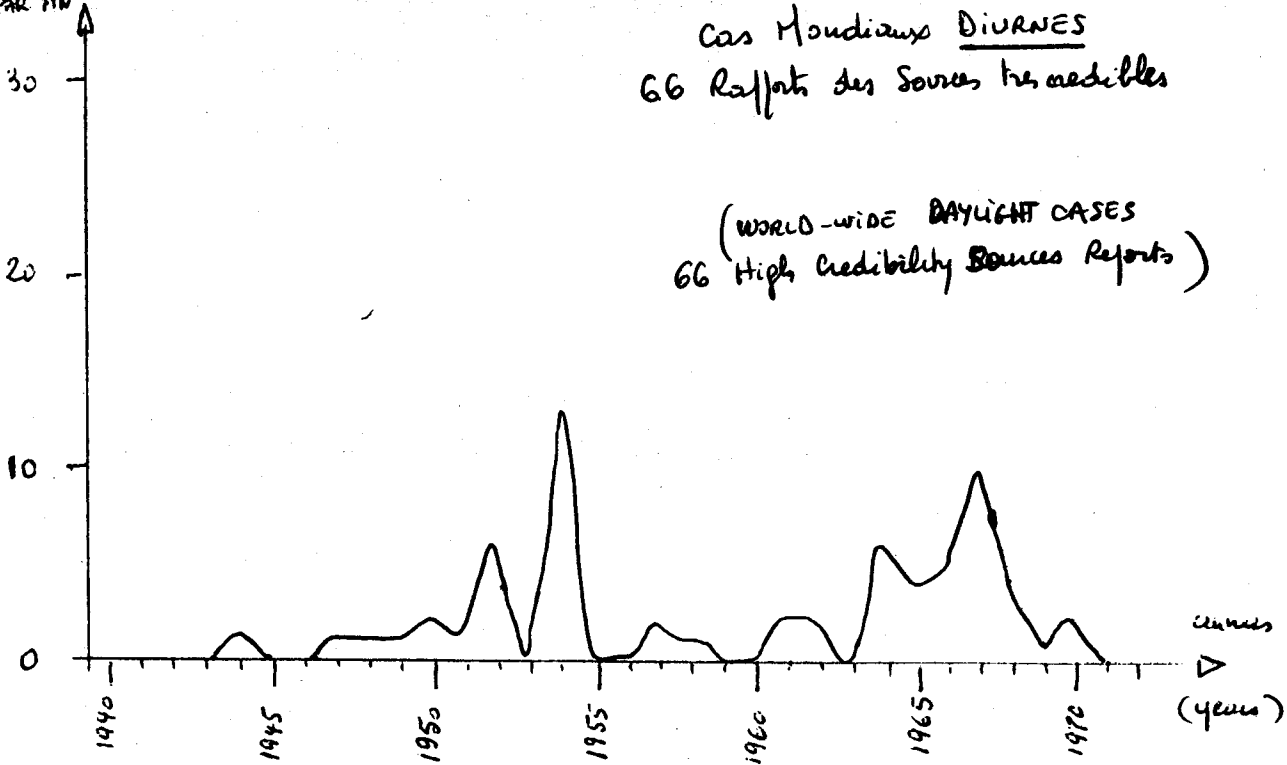 PAR AN
Cas Mondiaux DIURNES
66 Rapports des Sources tres credibles
(WORLD-WIDE DAYLIGHT CASES
66 High Credibility Sources Reports)
30
20
10
0
années
(years)
1940
1945
1950
1955
1960
1965
1970